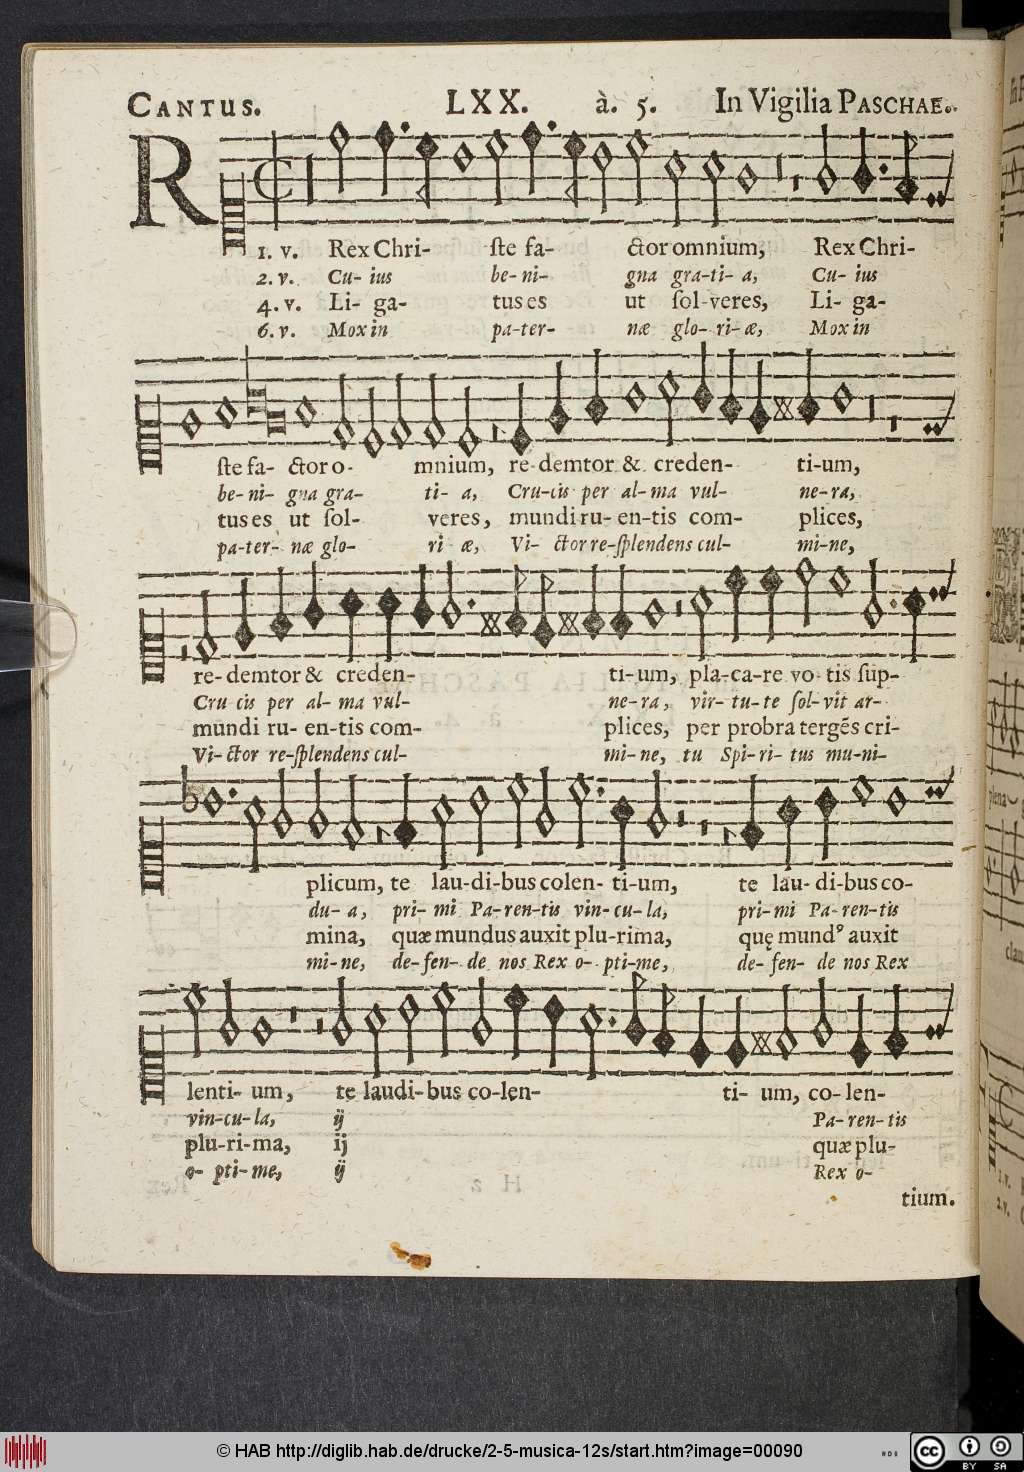 CANTUS. LXX. à. 5. In Vigilia PASCHAE.
R
1. v. Rex Chri- ste fa- ctor omnium, Rex Chri-
2. v. Cu- ius be- ni- gna gra- ti- a, Cu- ius
4. v. Li- ga- tus es ut sol- veres, Li- ga-
6. v. Mox in pa- ter- næ glo- ri- æ, Mox in
ste fa- ctor o- mnium, re- demtor & creden- ti-um,
be- ni- gna gra- ti- a, Cru-cis per al- ma vul- ne- ra,
tus es ut sol- veres, mundi ru- en-tis com- plices,
pa-ter- næ glo- ri æ, Vi- ctor re-splendens cul- mi-ne,
re- demtor & creden- ti-um, pla-ca-re vo tis sup-
Cru cis per al- ma vul- ne- ra, vir- tu- te sol- vit ar-
mundi ru- en-tis com- plices, per probra tergẽs cri-
Vi- ctor re-splendens cul- mi- ne, tu Spi- ri- tus mu-ni-
plicum, te lau-di-bus colen- ti-um, te lau- di-bus co-
du- a, pri- mi Pa-ren-tis vin-cu-la, pri-mi Pa-ren-tis
mina, quæ mundus auxit plu-rima, quę mundꝰ auxit
mi-ne, de-fen- de nos Rex o- pti-me, de- fen- de nos Rex
lenti- um, te laudi-bus co-len- ti- um, co- len-
vin-cu-la, ij Pa- ren-tis
plu-ri-ma, ij quæ plu-
o- pti-me, ij Rex o-
tium.
plena
clan
1. v.
2. v.
© HAB http://diglib.hab.de/drucke/2-5-musica-12s/start.htm?image=00090
cc BY SA